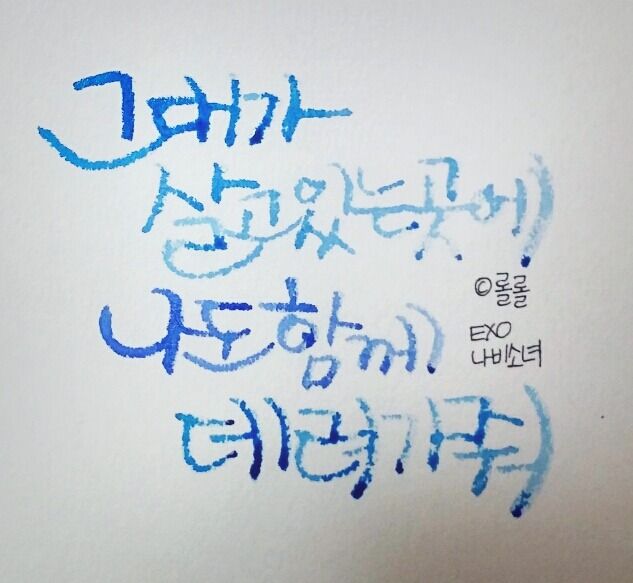 그대가
살고있는곳에
나도함께
데려가줘
©롤롤
EXO
나비소녀